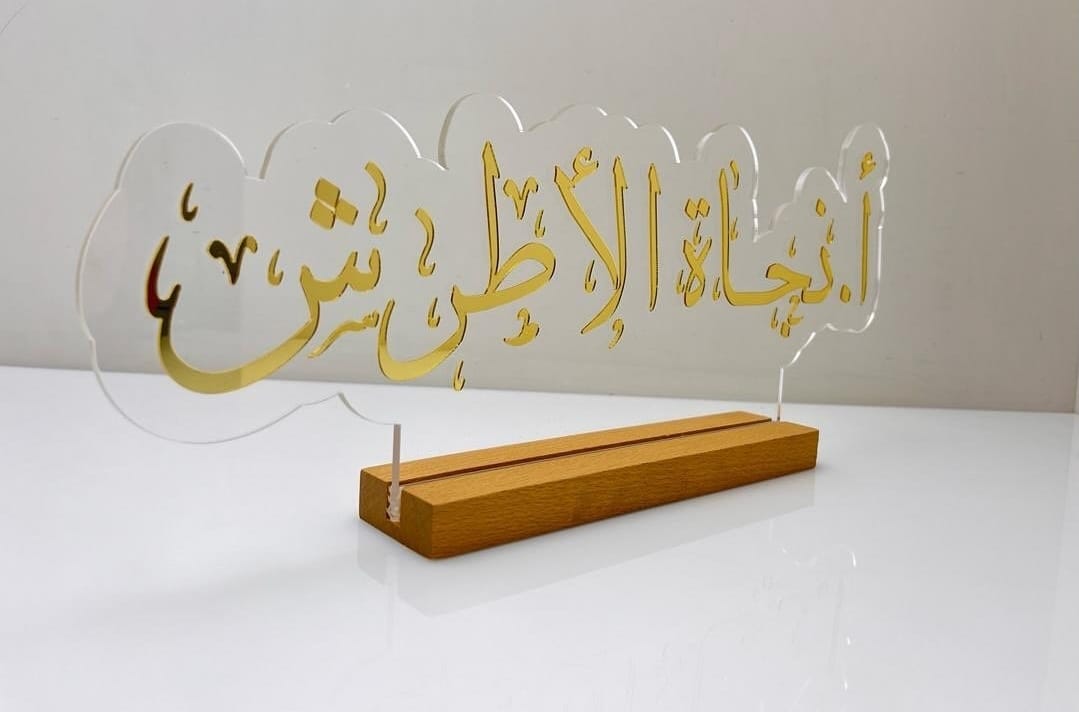 أ.نجاة الأطرش